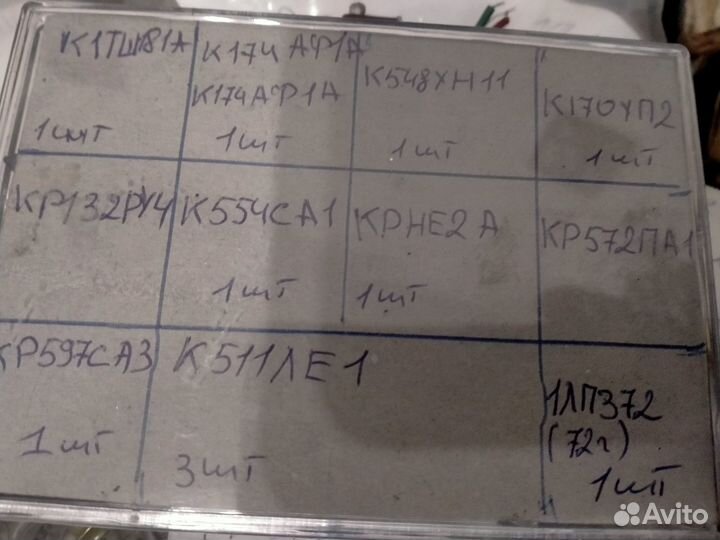 К1ТШ181А
1 шт
К174АФ1А
К174АФ1А
1 шт
К548УН11
1 шт
К170УП2
1 шт
КР132РУ4
К554СА1
1 шт
КРНЕ2А
1 шт
КР572ПА1
КР597СА3
1 шт
К511ЛЕ1
3 шт
1ЛП372
(72г)
1 шт
Avito